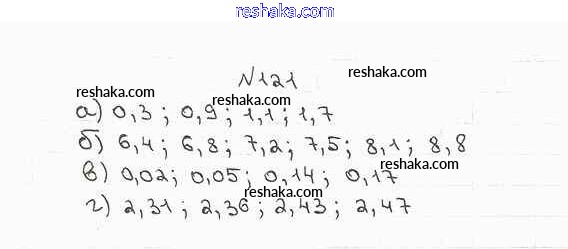 reshaka.com
N121
reshaka.com
reshaka.com
reshaka.com
а) 0,3 ; 0,9 ; 1,1 ; 1,7
reshaka.com
б) 6,4 ; 6,8 ; 7,2 ; 7,5 ; 8,1 ; 8,8
reshaka.com
reshaka.com
в) 0,02 ; 0,05 ; 0,14 ; 0,17
reshaka.com
г) 2,31 ; 2,36 ; 2,43 ; 2,47
reshaka.com